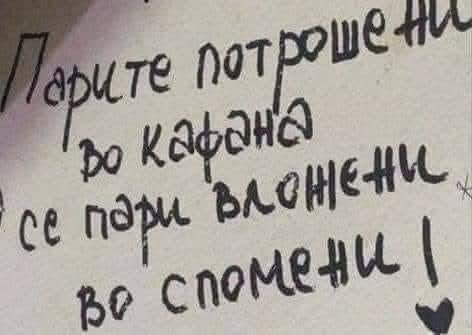 Парите потрошени
во кафана
се пари вложени
во спомени!